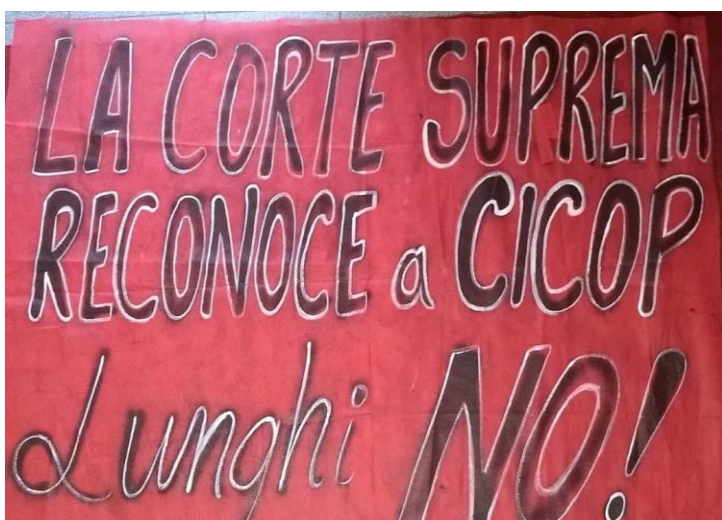 LA CORTE SUPREMA
RECONOCE a CICOP
Lunghi NO!